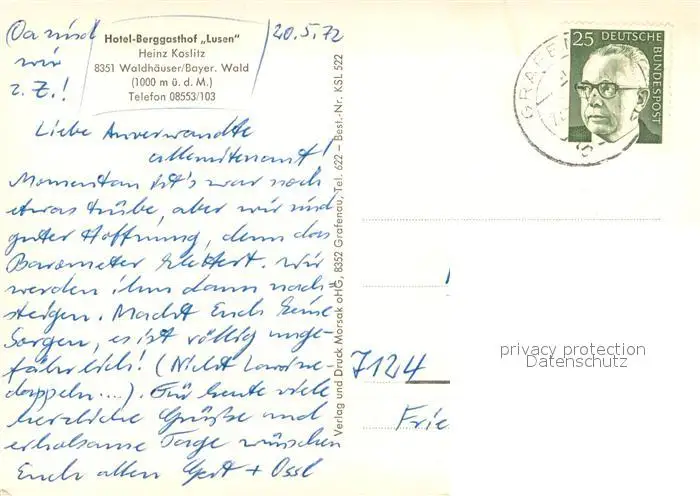 Da sind
wir
z. Z.!
Hotel-Berggasthof „Lusen"
Heinz Koslitz
8351 Waldhäuser/Bayer. Wald
(1000 m ü. d. M.)
Telefon 08553/103
20.5.72
Liebe Anverwandte
allemitenant!
Momentan ist's zwar noch
etwas trübe, aber wir sind
guter Hoffnung, denn das
Barometer klettert. Wir
werden ihm dann nach-
steigen. Macht Euch keine
Sorgen, es ist völlig unge-
fährlich! (Nicht
....). Für heute viele
herzliche Grüße und
erholsame Tage wünschen
Euch allen Gert + Ossl
Verlag und Druck Morsak oHG, 8352 Grafenau, Tel. 622 – Best.-Nr. KSL 522
25 DEUTSCHE
BUNDESPOST
GRAFEN
7124
Frie
privacy protection
Datenschutz